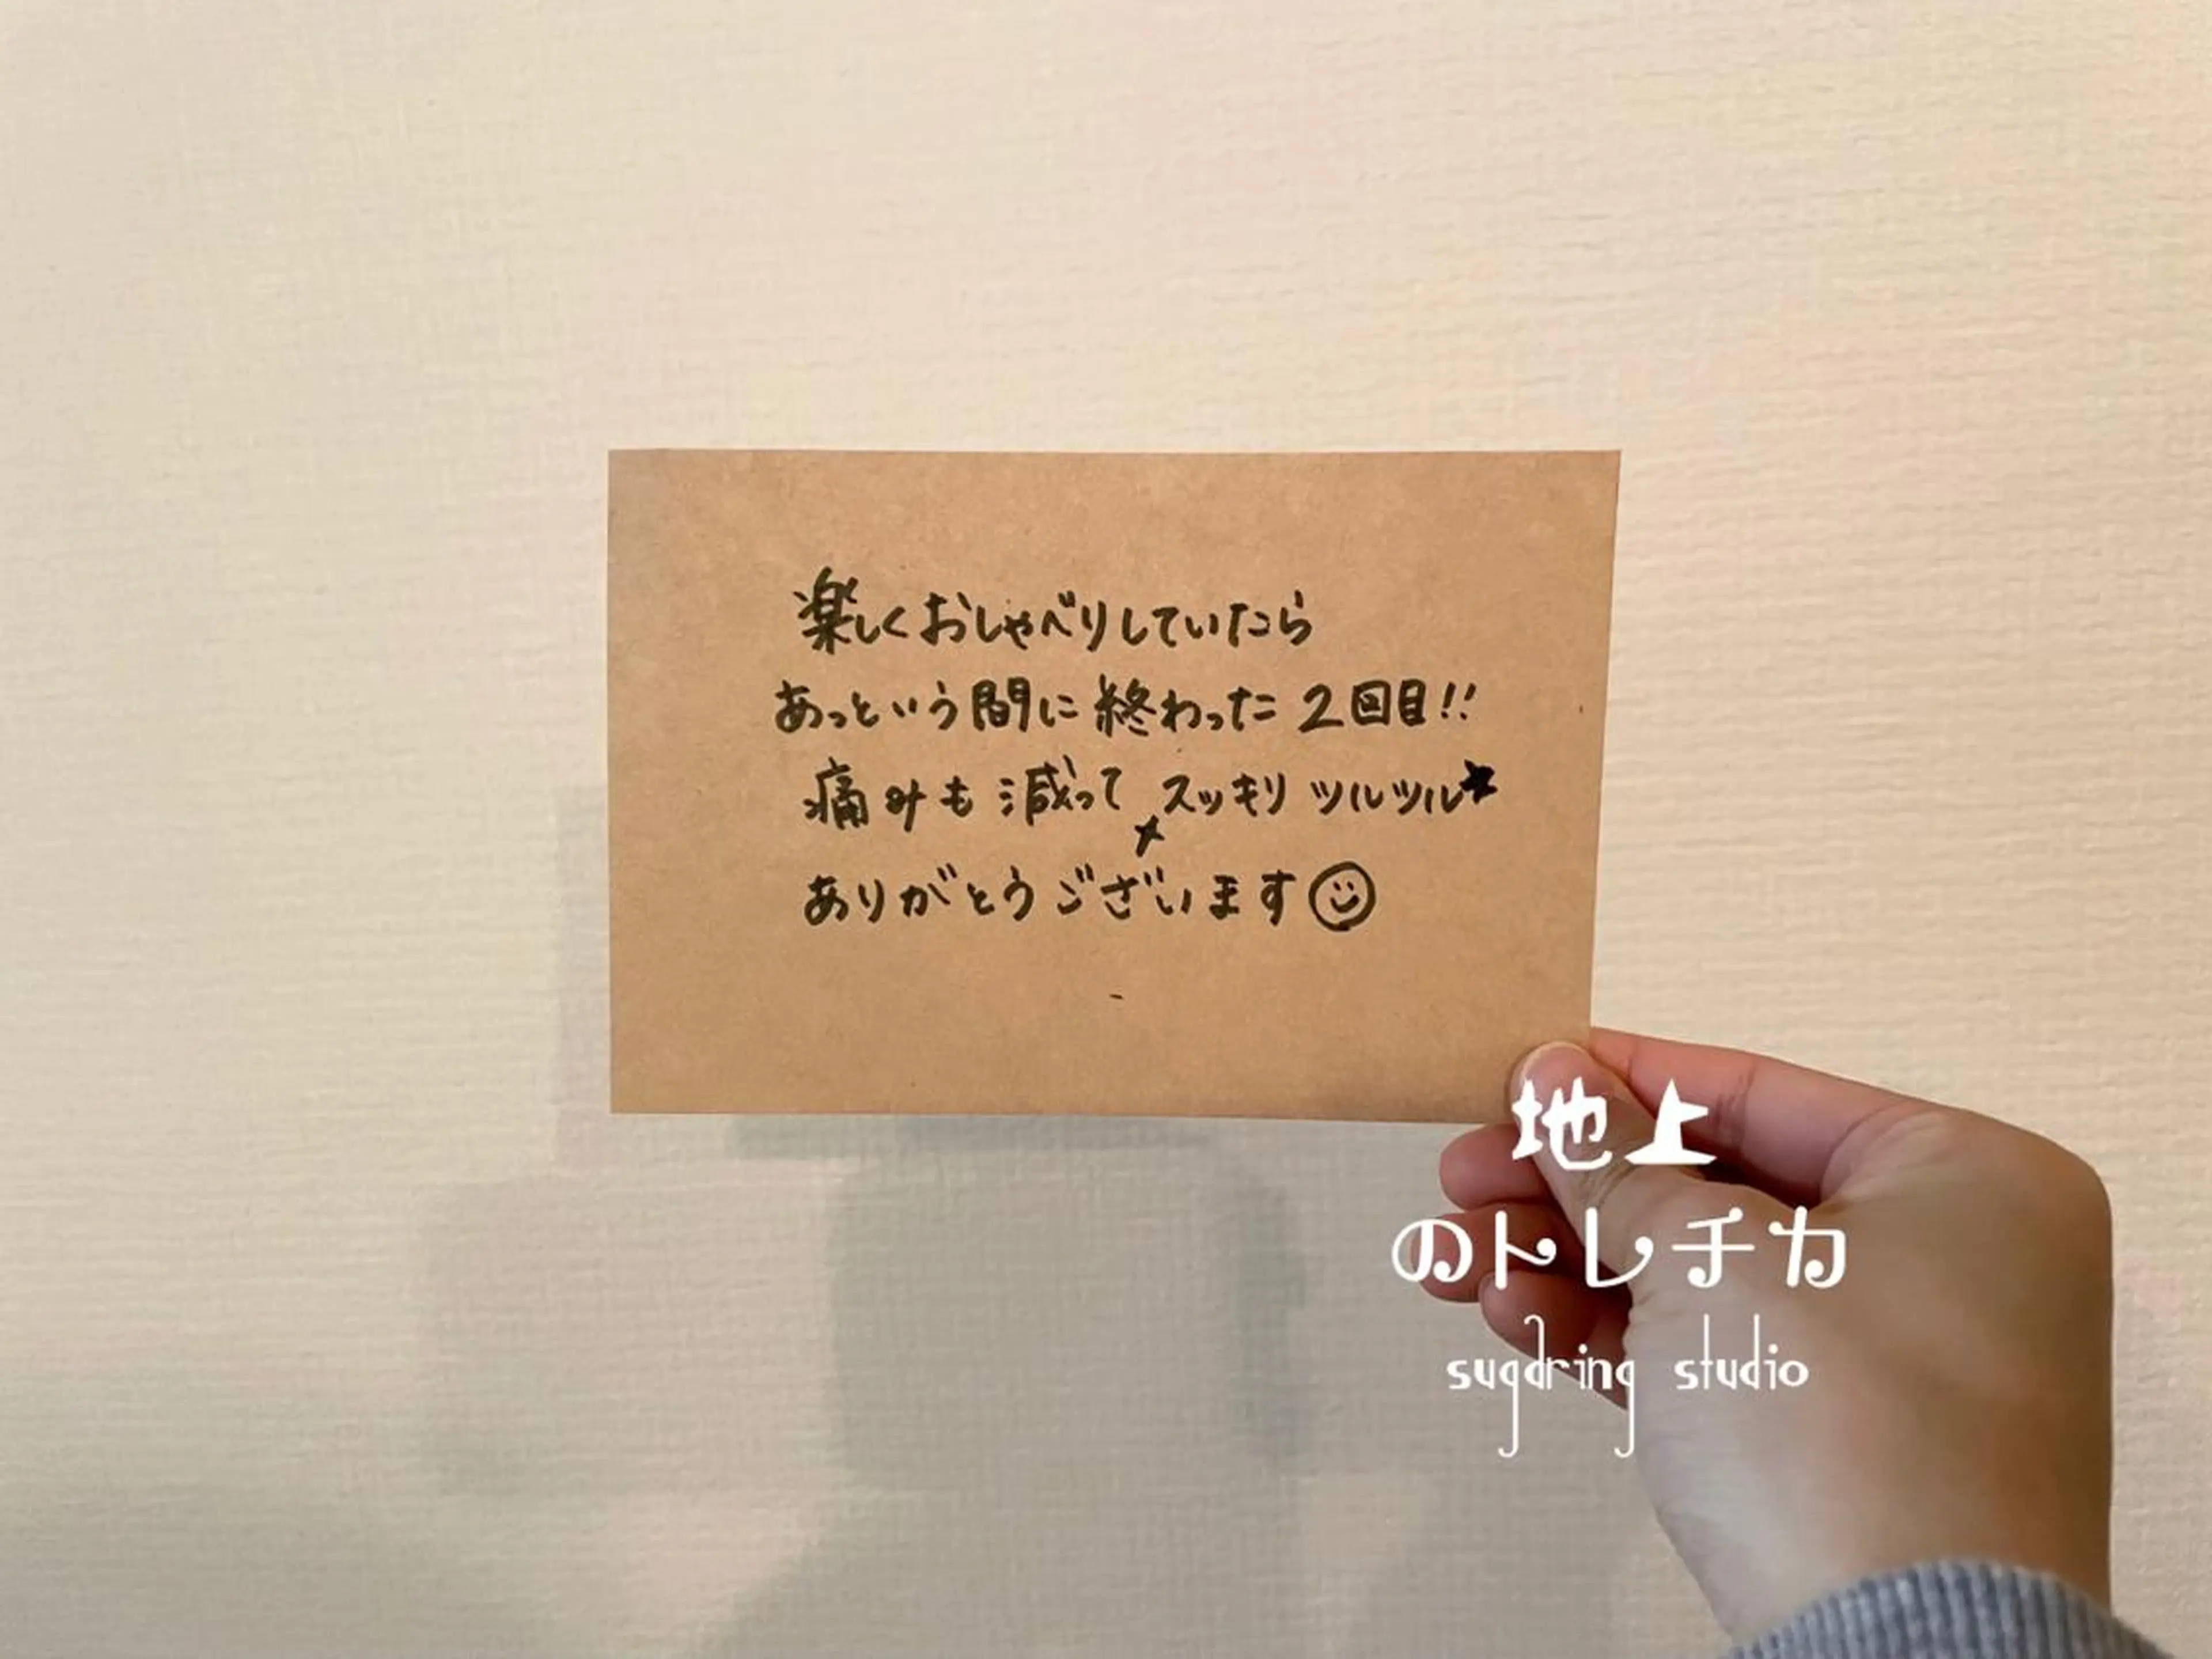 楽しくおしゃべりしていたら
あっという間に終わった2回目!!
痛みも減って スッキリ ツルツル★
ありがとうございます☺
地上
のトレチカ
sugaring studio